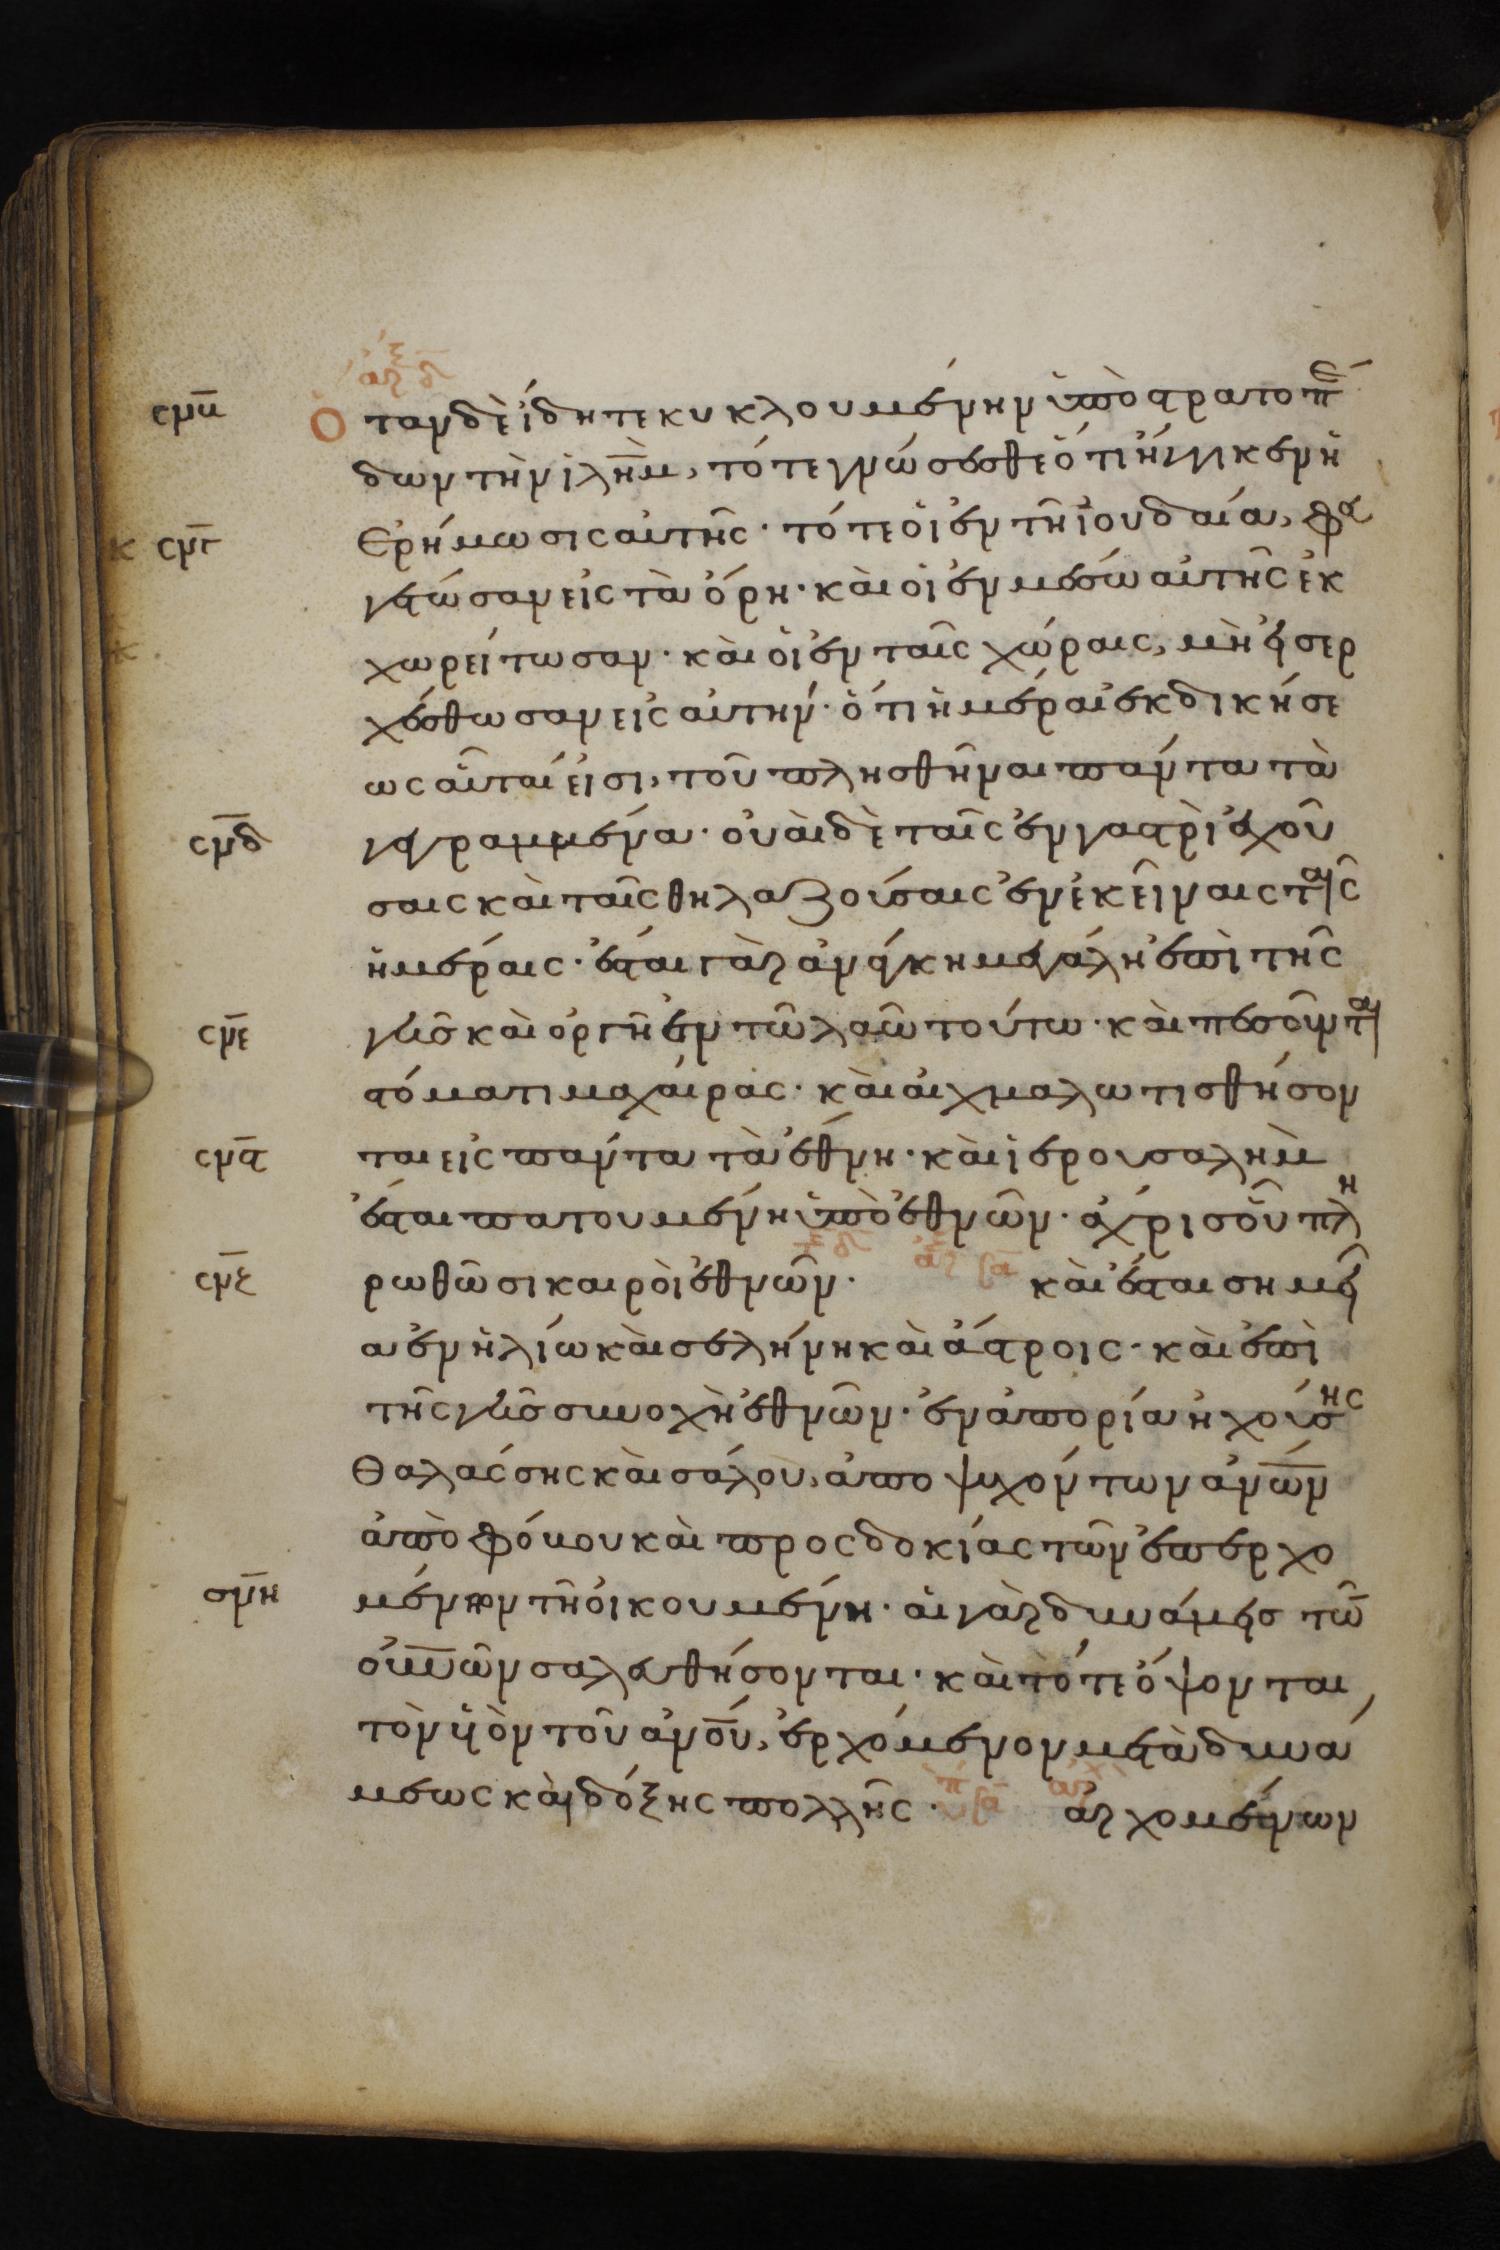 σμβ Ὅταν δὲ ἴδητε κυκλουμένην ὑπὸ στρατοπέ
δων τὴν ἰλη̅μ, τότε γνώσεσθε ὅτι ἤγγικεν ἡ
σμγ ἐρήμωσις αὐτῆς· τότε οἱ ἐν τῆ ἰουδαία, φευ
γέτωσαν εἰς τὰ ὄρη· καὶ οἱ ἐν μέσω αὐτῆς ἐκ
χωρείτωσαν· καὶ οἱ ἐν ταῖς χώραις, μὴ εἰσερ
χέσθωσαν εἰς αὐτήν· ὅτι ἡμέραι ἐκδικήσε
ως αὗται εἰσι, τοῦ πλησθῆναι πάντα τὰ
σμδ γεγραμμένα· οὐαὶ δὲ ταῖς ἐν γαστρὶ ἐχού
σαις καὶ ταῖς θηλαζούσαις ἐν ἐκείναις ταῖς
ἡμέραις· ἔσται γὰρ ἀνάγκη μεγάλη ἐπὶ τῆς
σμε γῆς καὶ ὀργῆ ἐν τῶ λαῶ τούτω· καὶ πεσοῦνται
στόματι μαχαίρας· καὶ αἰχμαλωτισθήσον
σμϛ ται εἰς πάντα τὰ ἔθνη· καὶ ἱερουσαλὴμ
ἔσται πατουμένη ὑπὸ ἐθνῶν· ἄχρις οὗ πλη
σμζ ρωθῶσι καιροὶ ἐθνῶν· καὶ ἔσται σημεῖ
α ἐν ἡλίω καὶ σελήνη καὶ ἄστροις· καὶ ἐπὶ
τῆς γῆς συνοχὴ ἐθνῶν· ἐν ἀπορία ἠχούσης
θαλάσσης καὶ σάλου, ἀποψυχόντων ἀνω̅ν
ἀπὸ φόβου καὶ προσδοκίας τῶν ἐπερχο
σμη μένων τῆ οἰκουμένη· αἱ γὰρ δυνάμεις τῶν
οὐν̅ῶν σαλευθήσονται· καὶ τότε ὄψονται
τὸν υἱὸν τοῦ ἀνο̅υ, ἐρχόμενον μετὰ δυνά
μεως καὶ δόξης πολλῆς· ἀρχομένων